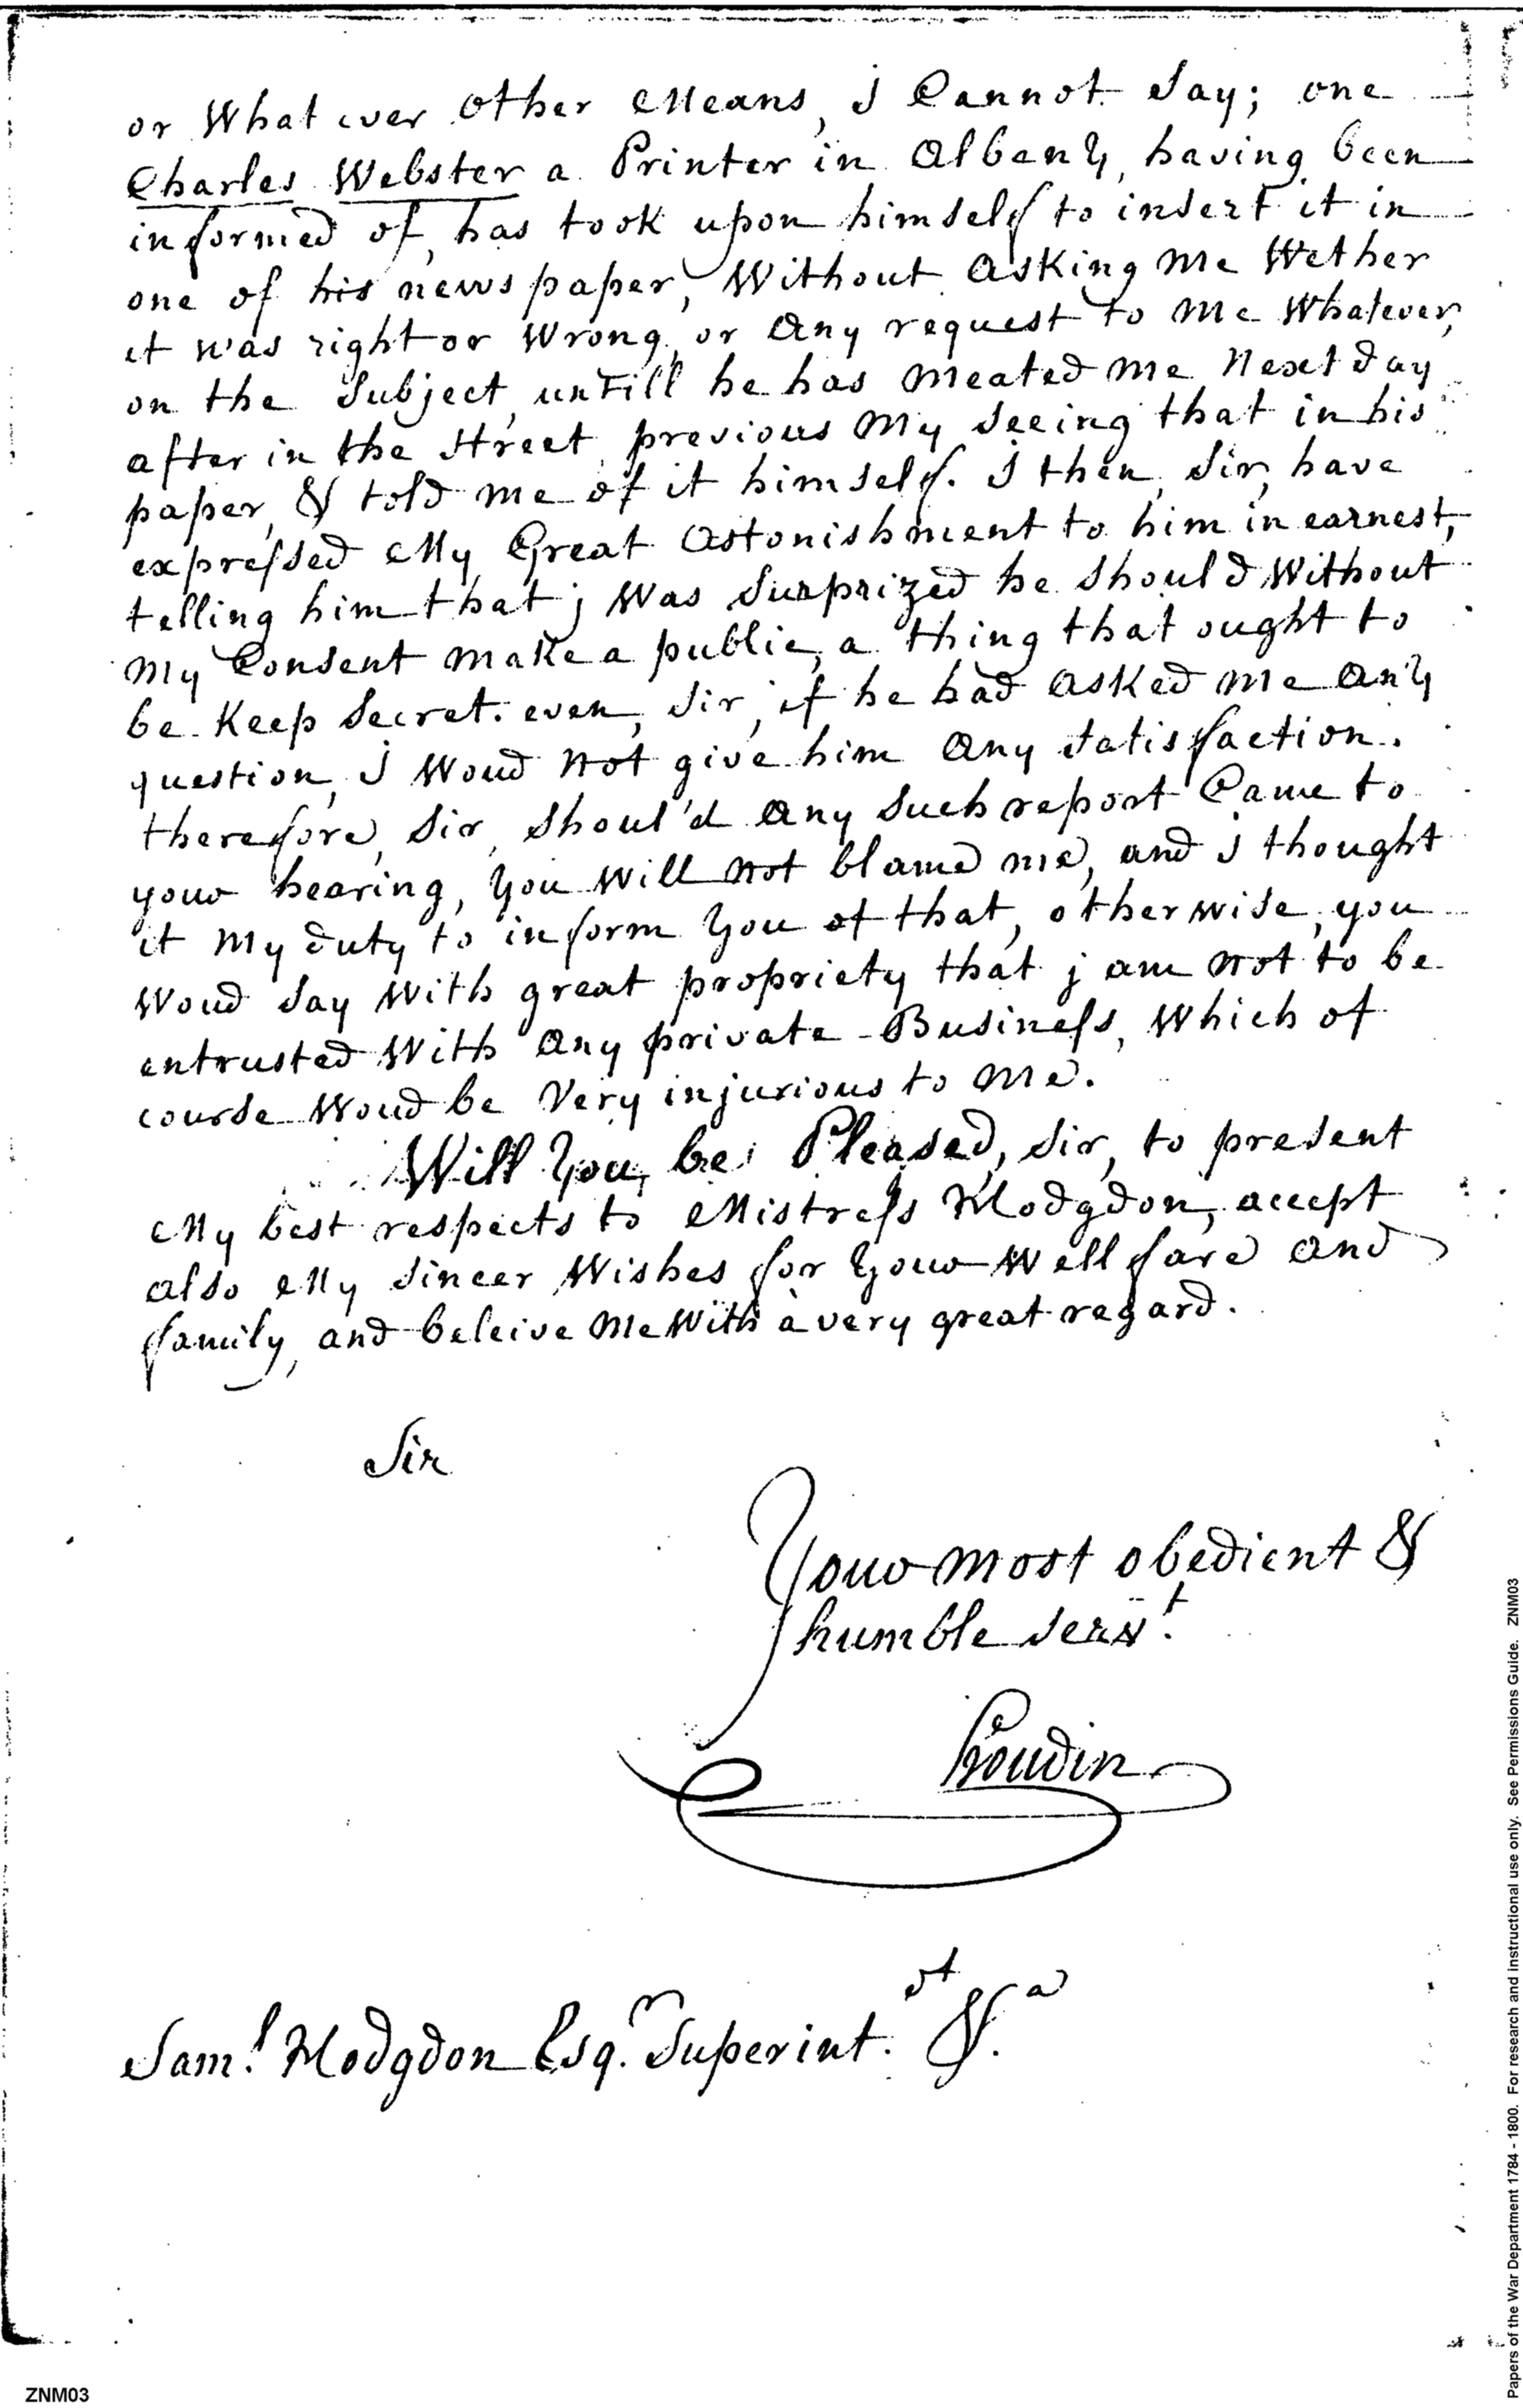 or Whatever other Means, j Cannot Say; one
Charles Webster a Printer in Albany, having been
informed of, has took upon himself to insert it in
one of his news paper, Without Asking Me Wether
it was right or Wrong, or Any request to Me Whatever,
on the Subject, untill he has Meated Me Next day
after in the Street, previous My Seeing that in his
paper, & told me of it himself. J then, Sir, have
expressed My Great Astonishment to him in earnest,
telling him that j Was Surprized he Should Without
My Consent make a public, a thing that ought to
be Keep Secret. even, Sir, if he had Asked Me Any
question, J Woud Not give him Any Satisfaction.
therefore, Sir, Shoul'd Any Such report Came to
your hearing, You Will Not blame me, and j thought
it My duty to inform You of that, otherwise, you
Woud Say With great propriety that j am Not to be
entrusted With Any private-Business, Which of
course Woud be Very injurious to Me.
Will You, be Pleased, Sir, to present
My best respects to Mistress Hodgdon, accept
also My Sincer Wishes for Your Well fare and
family, and beleive Me With à very great regard.
Sir
Your most obedient &
humble serv.t
Houdin
Sam.l Hodgdon Esq.r Superint.dt &.a
Papers of the War Department 1784 - 1800. For research and instructional use only. See Permissions Guide. ZNM03
ZNM03